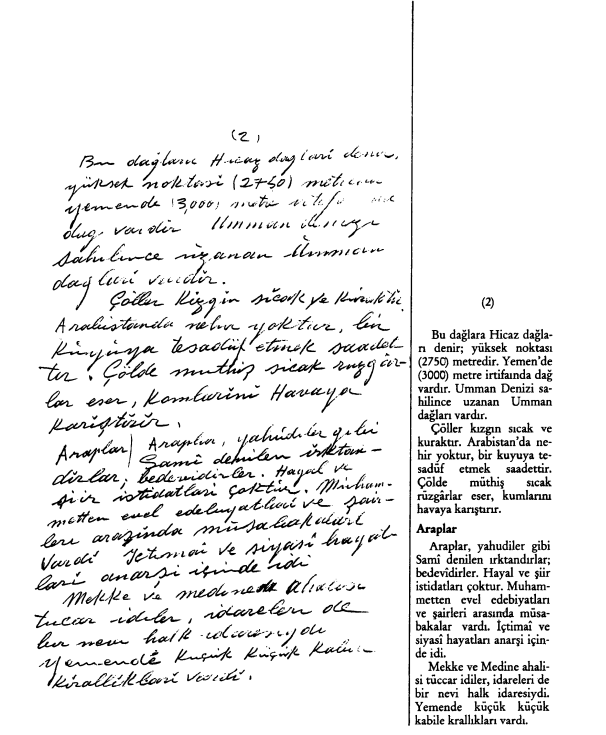 (2)
Bu dağlara Hicaz dağlari denir,
yüksek noktasi (2750) metredir
yemende (3,000) metre irtifa
dag vardir Umman denizi
sahilince uzanan Umman
dağlari vardir.
Çöller Kizgin sicak ve Kuraktir
Arabistanda nehir yoktur, bir
Kuyuya tesadüf etmek saadet-
tir. Çölde muthiş sicak ruzgâr-
lar eser, Kumlarini Havaya
Kariştirir.
Araplar) Araplar, yahudiler gibi
Samî denilen irktan-
dirlar; bedevidirler. Hayal ve
şiir istidatlari çoktur. Muham-
metten evel edebiyatlari ve şair-
leri arasinda müsabakalari
vardi İctimai ve siyasî hayat-
lari anarşi içinde idi
Mekke ve medine Ahalisi
tuccar idiler, idareleri de
bir nevi halk idaresiydi
Yemende Kuçuk Küçük Kabile
Kirallıklari vardi.
(2)
Bu dağlara Hicaz dağla-
rı denir; yüksek noktası
(2750) metredir. Yemen'de
(3000) metre irtifaında dağ
vardır. Umman Denizi sa-
hilince uzanan Umman
dağları vardır.
Çöller kızgın sıcak ve
kuraktır. Arabistan'da ne-
hir yoktur, bir kuyuya te-
sadüf etmek saadettir.
Çölde müthiş sıcak
rüzgârlar eser, kumlarını
havaya karıştırır.
Araplar
Araplar, yahudiler gibi
Samî denilen ırktandırlar;
bedevîdirler. Hayal ve şiir
istidatları çoktur. Muham-
metten evel edebiyatları
ve şairleri arasında müsa-
bakalar vardı. İçtimaî ve
siyasî hayatları anarşi için-
de idi.
Mekke ve Medine ahali-
si tüccar idiler, idareleri de
bir nevi halk idaresiydi.
Yemende küçük küçük
kabile krallıkları vardı.